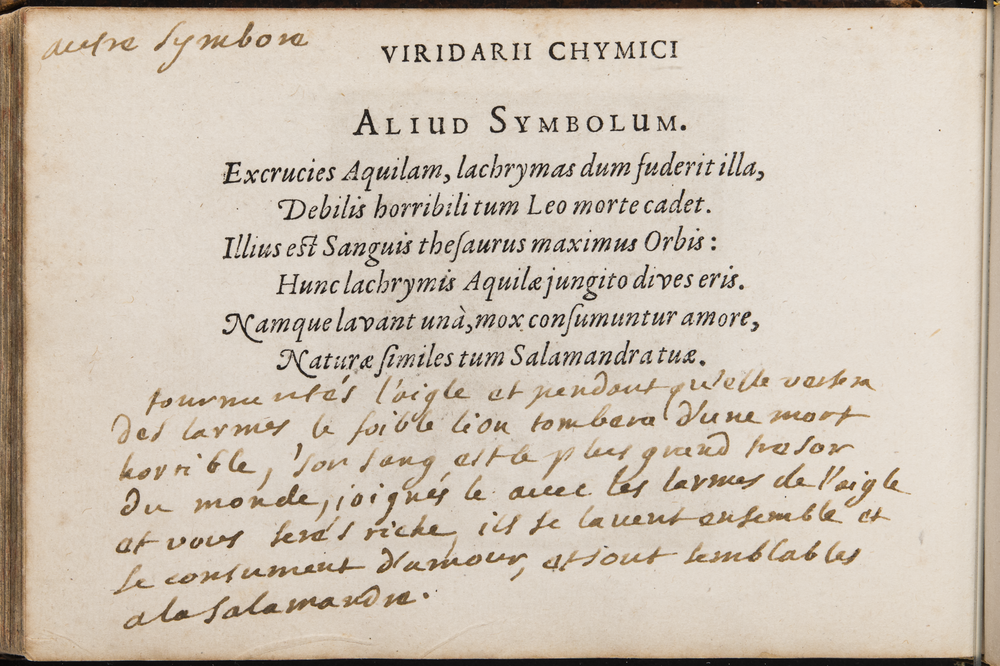 autre Symbole
VIRIDARII CHYMICI
ALIUD SYMBOLUM.
Excrucies Aquilam, lachrymas dum fuderit illa,
Debilis horribili tum Leo morte cadet.
Illius est Sanguis theſaurus maximus Orbis:
Hunc lachrymis Aquilæ jungito dives eris.
Namque lavant unà, mox conſumuntur amore,
Naturæ ſimiles tum Salamandra tuæ.
tourmentés l'aigle et pendant qu'elle versera
des larmes le foible lion tombera d'une mort
horrible, son sang est le plus grand tresor
du monde, joignés le avec les larmes de l'aigle
et vous serés riche, ils se lavent ensemble et
se consument d'amour, et sont semblables
a la Salamandre.